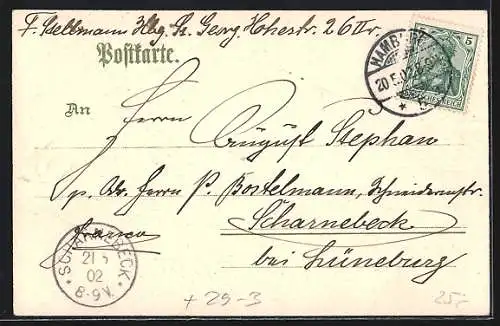 F. Sellmann Hbg. St. Georg, Hohestr. 26 IIr.
Postkarte.
HAMBURG
20.5.02
5
DEUTSCHES REICH
An
Herrn
August Stephan
p. Adr. Herrn P. Bostelmann, Schneidermstr.
Franco
Scharnebeck
bei Lüneburg
SCHARNEBECK
21 5
02
8-9V.
+ 29-3
25,-